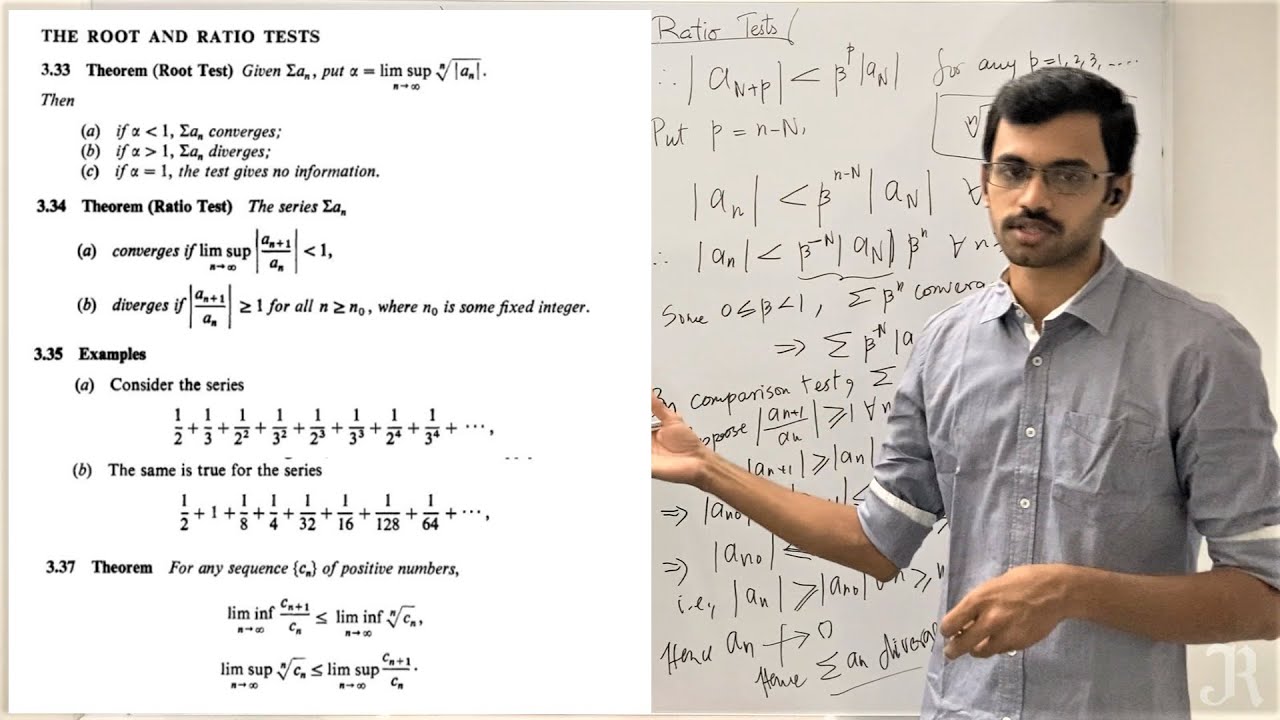 THE ROOT AND RATIO TESTS
3.33 Theorem (Root Test) Given Σaₙ, put α = lim sup ⁿ√|aₙ|.
n→∞
Then
(a) if α < 1, Σaₙ converges;
(b) if α > 1, Σaₙ diverges;
(c) if α = 1, the test gives no information.
3.34 Theorem (Ratio Test) The series Σaₙ
(a) converges if lim sup |aₙ₊₁/aₙ| < 1,
n→∞
(b) diverges if |aₙ₊₁/aₙ| ≥ 1 for all n ≥ n₀, where n₀ is some fixed integer.
3.35 Examples
(a) Consider the series
1/2 + 1/3 + 1/2² + 1/3² + 1/2³ + 1/3³ + 1/2⁴ + 1/3⁴ + ⋯,
(b) The same is true for the series
1/2 + 1 + 1/8 + 1/4 + 1/32 + 1/16 + 1/128 + 1/64 + ⋯,
3.37 Theorem For any sequence {cₙ} of positive numbers,
lim inf cₙ₊₁/cₙ ≤ lim inf ⁿ√cₙ,
n→∞ n→∞
lim sup ⁿ√cₙ ≤ lim sup cₙ₊₁/cₙ.
n→∞ n→∞
Ratio Tests
∴ |a_{N+p}| < β^p |a_N| for any p = 1, 2, 3, ....
Put p = n-N,
|aₙ| < β^{n-N} |a_N| ∀
∴ |aₙ| < β^{-N} |a_N| βⁿ ∀ n
Since 0 ≤ β < 1, Σ βⁿ
⇒ Σ β^{-N} |a
comparison test, Σ
|aₙ₊₁/aₙ| ≥ 1 ∀ n
|aₙ₊₁| ≥ |aₙ|
⇒ |aₙ₀|
⇒ |aₙ₀| ≤
i.e., |aₙ| ≥ |aₙ₀| ∀ n ≥
Hence aₙ ↛ 0
Hence Σ aₙ
JR